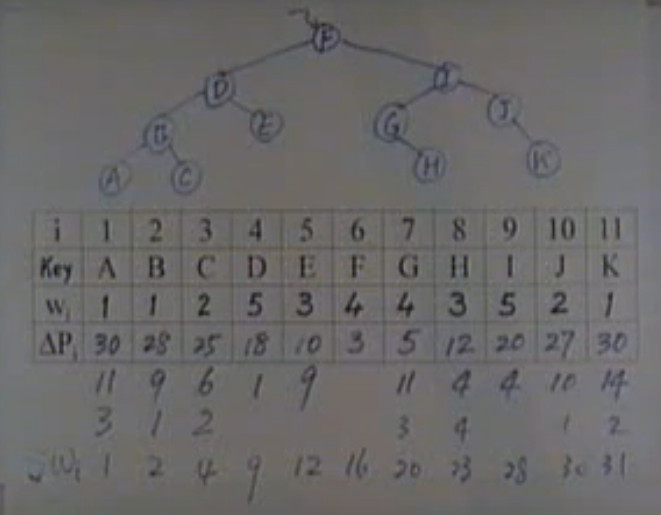 F
D I
B E G J
A C H K
i 1 2 3 4 5 6 7 8 9 10 11
Key A B C D E F G H I J K
wᵢ 1 1 2 5 3 4 4 3 5 2 1
ΔPᵢ 30 28 25 18 10 3 5 12 20 27 30
11 9 6 1 9 11 4 4 10 14
3 1 2 3 4 1 2
Wᵢ 1 2 4 9 12 16 20 23 28 30 31